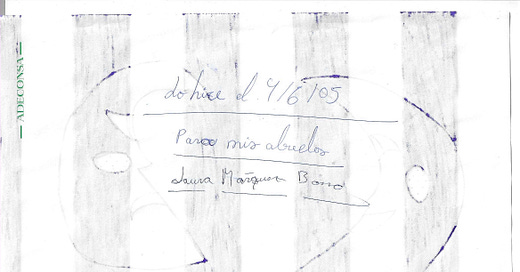 ADECONSA
Lo hice el 4/6/05
Para mis abuelos
Laura Márquez